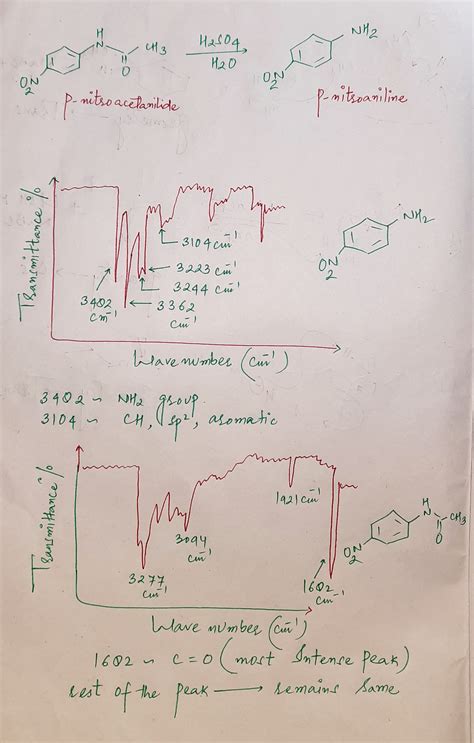 H
N
CH3
O
O2N
H2SO4
H2O
NH2
O2N
p-nitroacetanilide
p-nitroaniline
Transmittance %
3104 cm-1
3223 cm-1
3244 cm-1
3402
cm-1
3362
cm-1
NH2
O2N
Wave number (cm-1)
3402 ~ NH2 group.
3104 ~ CH, sp2, aromatic
Transmittance %
1921 cm-1
3094
cm-1
3277
cm-1
1602
cm-1
H
N
CH3
O
O2N
Wave number (cm-1)
1602 ~ C=O (most Intense peak)
rest of the peak → remains same